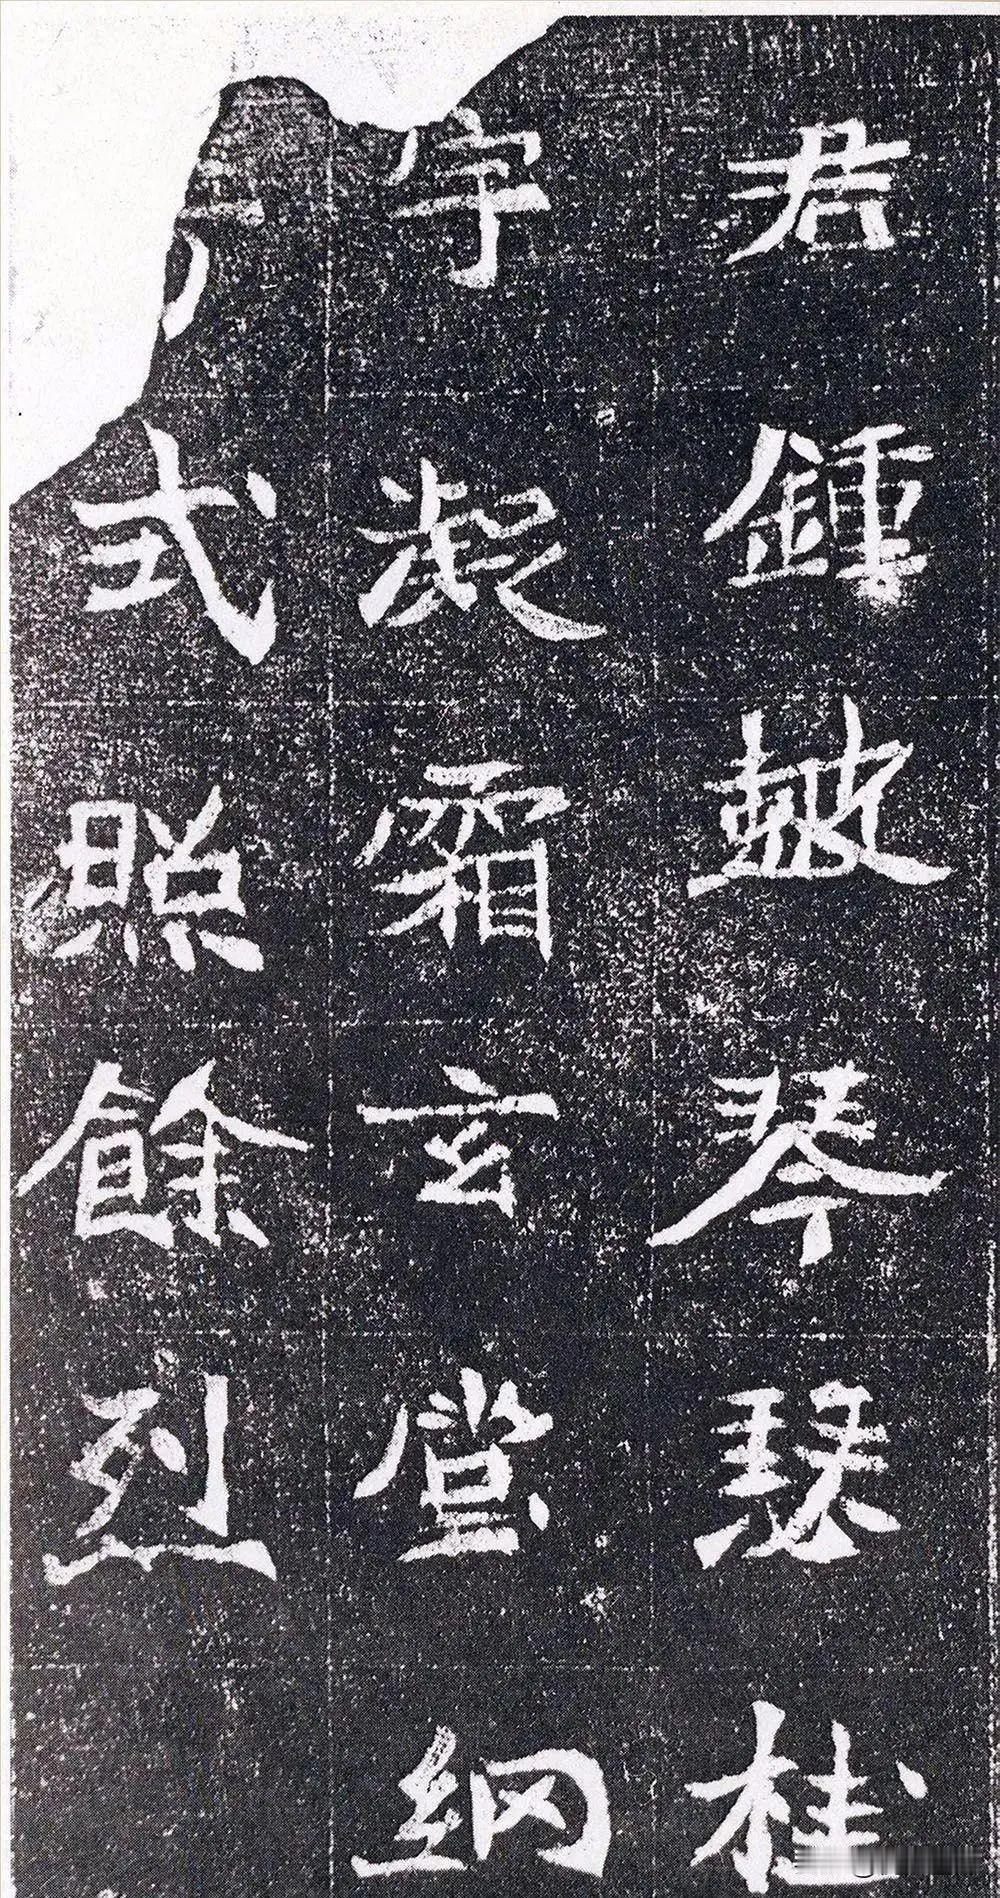 君鍾鼓琴瑟桂
字凝霜玄堂網
式照餘烈